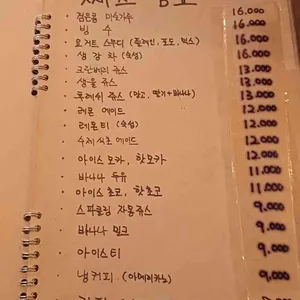 검은콩 미숫가루 16.000
빙수 16.000
요거트 스무디 (플레인, 포도, 믹스) 16.000
생강차 (숙성) 16.000
크랜베리 쥬스 13.000
생율 쥬스 13.000
후레쉬 쥬스 (망고, 딸기+바나나) 13.000
레몬 에이드 12.000
레몬티 (숙성) 12.000
수제 씨쵸 에이드 12.000
아이스모카, 핫모카 12.000
바나나 두유 11.000
아이스 초코, 핫초코 11.000
스파클링 자몽쥬스 9.000
바나나 밀크 9.000
아이스티 9.000
냉커피 (아메리카노) 9.000